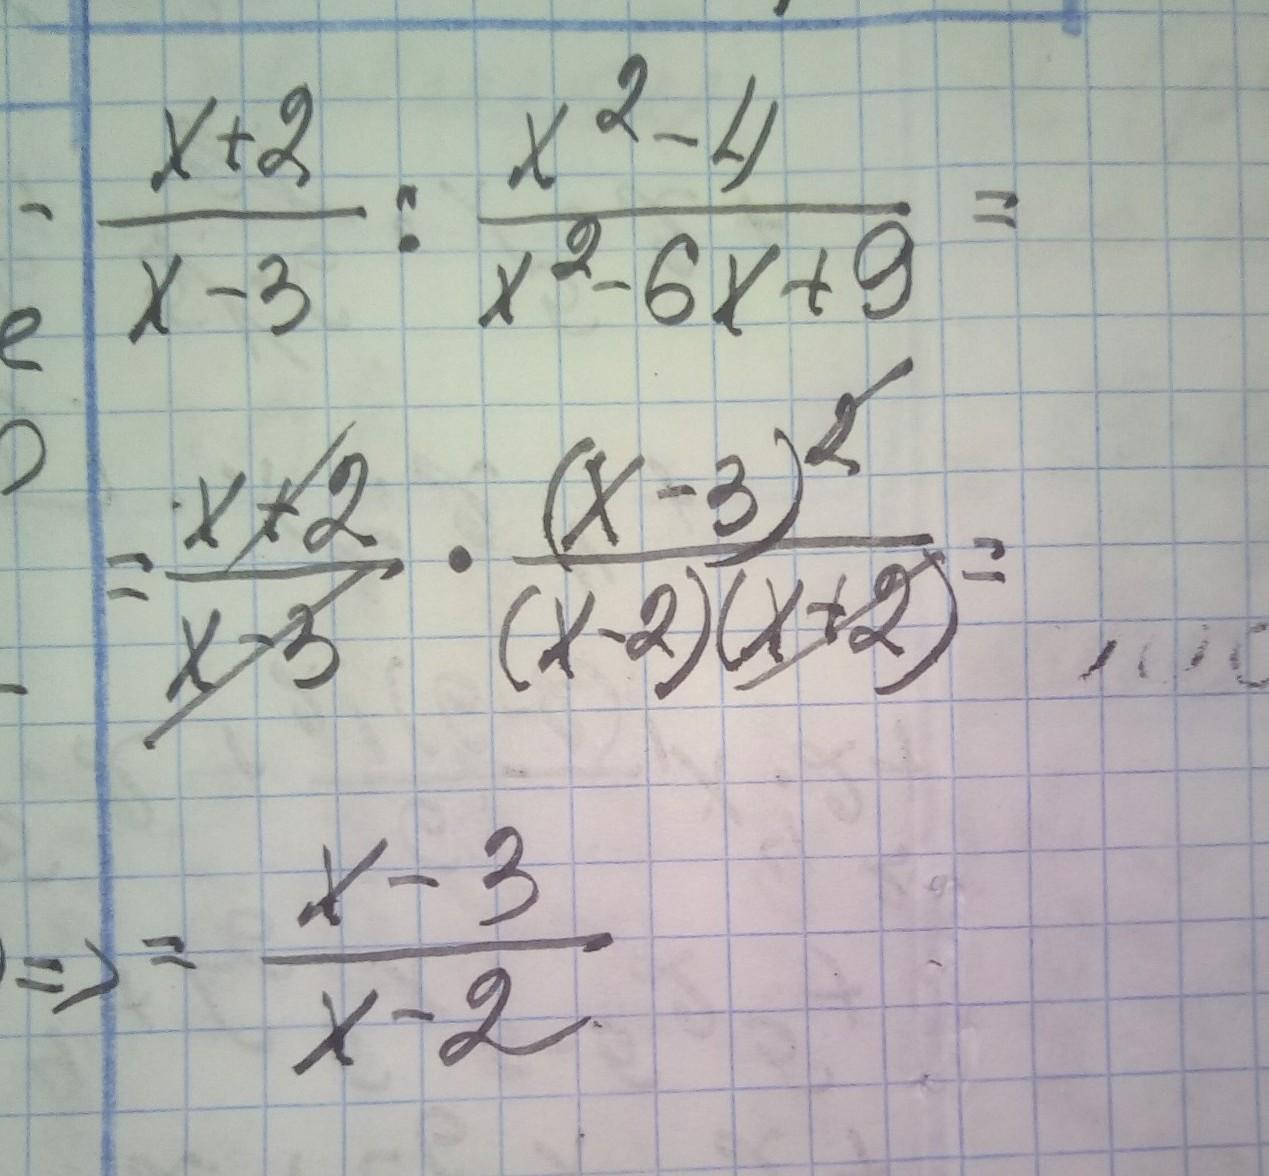 x+2 / x-3 : x²-4 / x²-6x+9 =
= x+2 / x-3 · (x-3)² / (x-2)(x+2) =
=> = x-3 / x-2